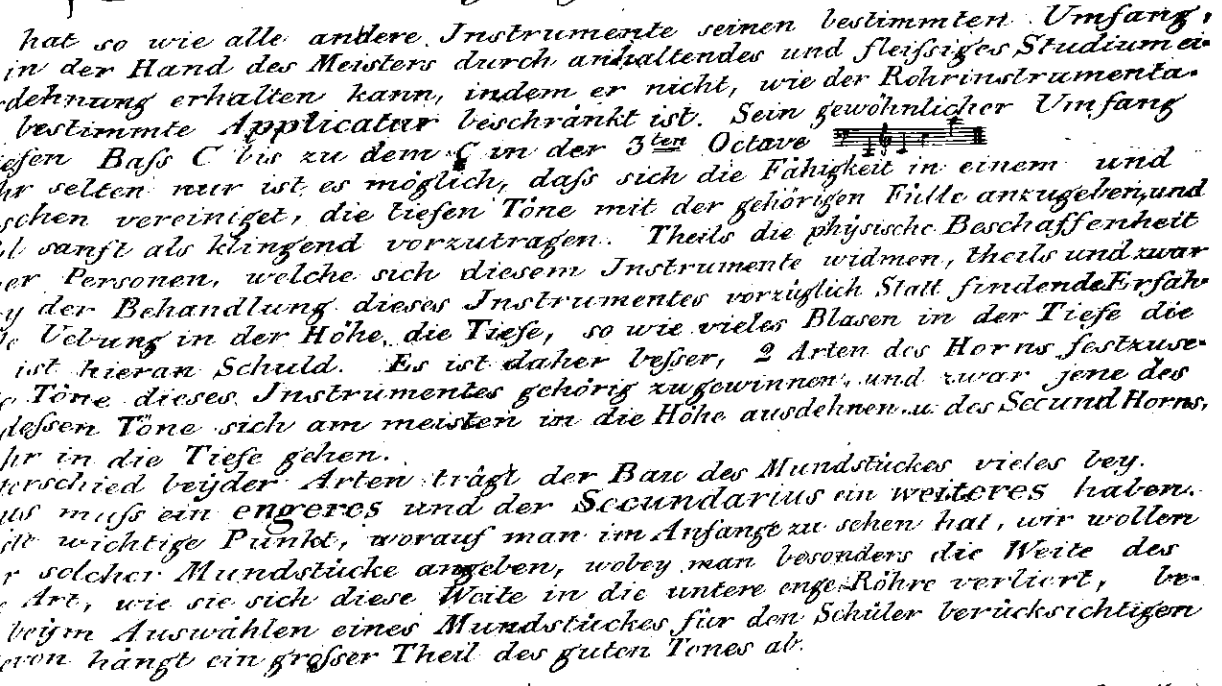 hat so wie alle andere Instrumente seinen bestimmten Umfang,
in der Hand des Meisters durch anhaltendes und fleißiges Studium ei-
dehnung erhalten kann, indem er nicht, wie der Rohrinstrumenta-
bestimmte Applicatur beschränkt ist. Sein gewöhnlicher Umfang
iefen Baß C bis zu dem C in der 3ten Octave
hr selten nur ist es möglich, daß sich die Fähigkeit in einem und
schen vereiniget, die tiefen Töne mit der gehörigen Fülle anzugeben, und
l sanft als klingend vorzutragen. Theils die physische Beschaffenheit
er Personen, welche sich diesem Instrumente widmen, theils und zwar
y der Behandlung dieses Instrumentes vorzüglich Statt findende Erfah-
Uebung in der Höhe, die Tiefe, so wie vieles Blasen in der Tiefe die
ist hieran Schuld. Es ist daher beßer, 2 Arten des Horns festzuse-
Töne dieses Instrumentes gehörig zu gewinnen, und zwar jene des
deßen Töne sich am meisten in die Höhe ausdehnen u. des Secund Horns,
hr in die Tiefe gehen.
terschied beyder Arten trägt der Bau des Mundstückes vieles bey.
us muß ein engeres und der Secundarius ein weiteres haben.
wichtige Punkt, worauf man im Anfange zu sehen hat, wir wollen
r solcher Mundstücke angeben, wobey man besonders die Weite des
Art, wie sie sich diese Weite in die untere enge Röhre verliert, be-
beym Auswählen eines Mundstückes für den Schüler berücksichtigen
hängt ein großer Theil des guten Tones ab.